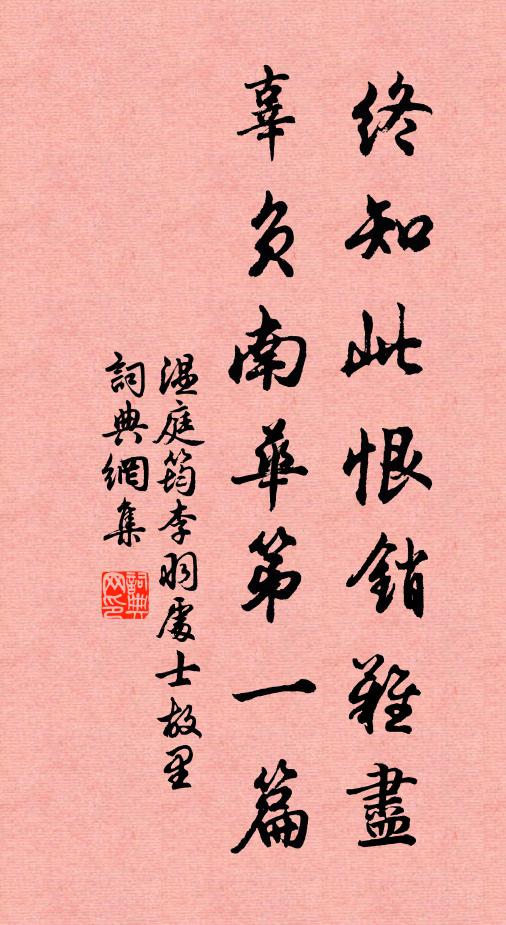 終知此恨銷難盡
辜負南華第一篇
溫庭筠李羽處士故里
詞典網集
詞典
网印